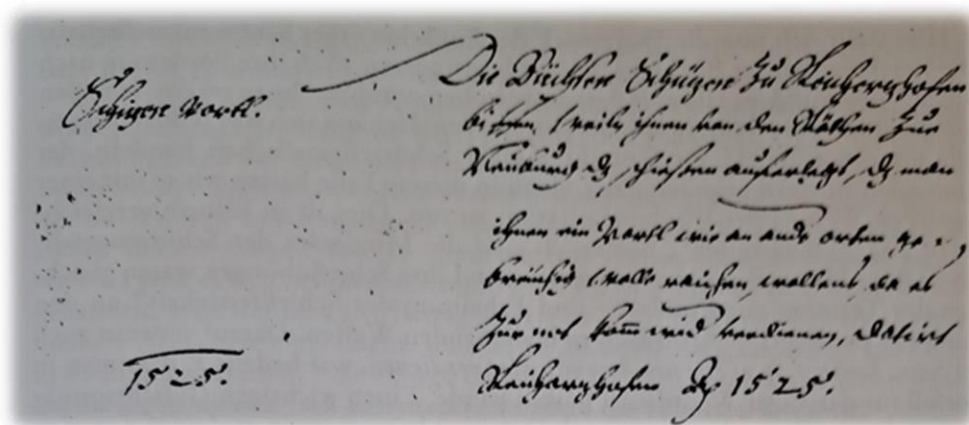 Schüzen Vortl.
1525.
Die Büchsen Schüzen zu Reicharzhofen
bitten, weiln ihnen von den Räthen zue
Neuburg dz schießen auferlegt, dz man
ihnen ein Vortl wie an andr orten ge-
breuchig wolle raichen, wollens da es
zur not komm wird verdienen, datirt
Reicharzhofen Ao 1525.